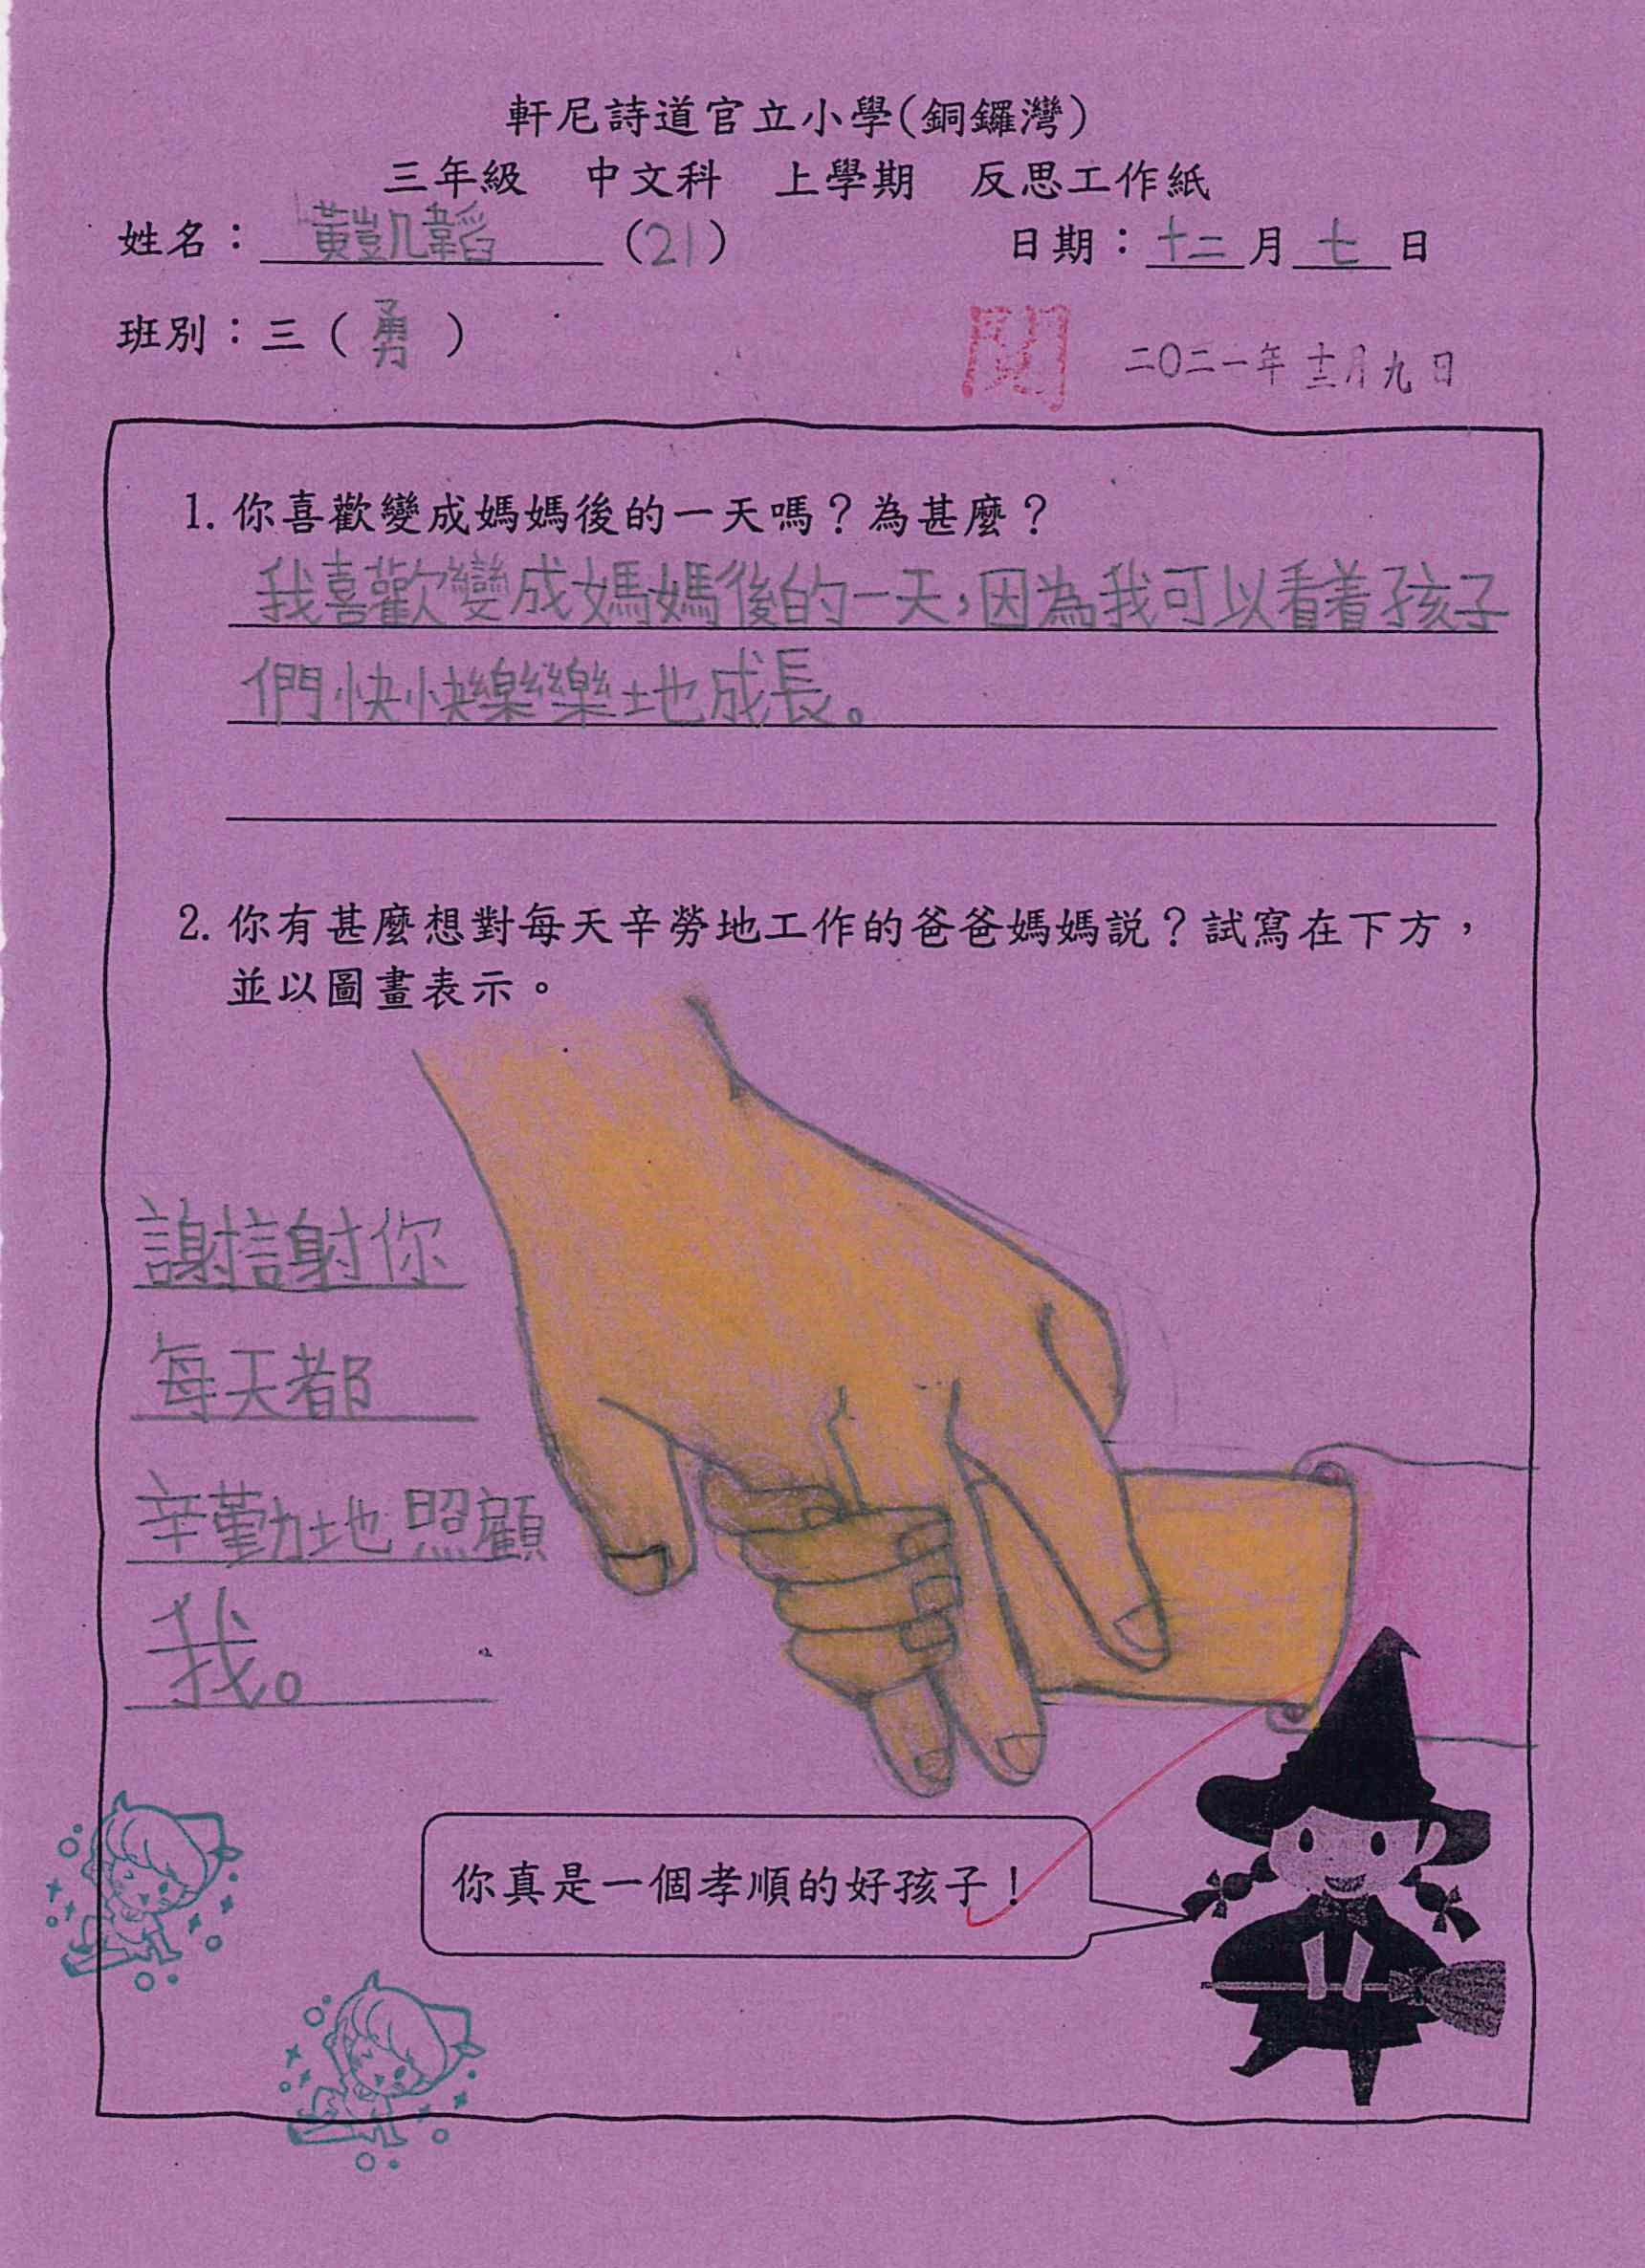 軒尼詩道官立小學(銅鑼灣)
三年級 中文科 上學期 反思工作紙
姓名：黃凱韜 (21) 日期：十二月七日
班別：三(勇)
閱 二〇二一年十二月九日
1. 你喜歡變成媽媽後的一天嗎？為甚麼？
我喜歡變成媽媽後的一天，因為我可以看着孩子
們快快樂樂地成長。
2. 你有甚麼想對每天辛勞地工作的爸爸媽媽説？試寫在下方，
並以圖畫表示。
謝謝你
每天都
辛勤地照顧
我。
你真是一個孝順的好孩子！